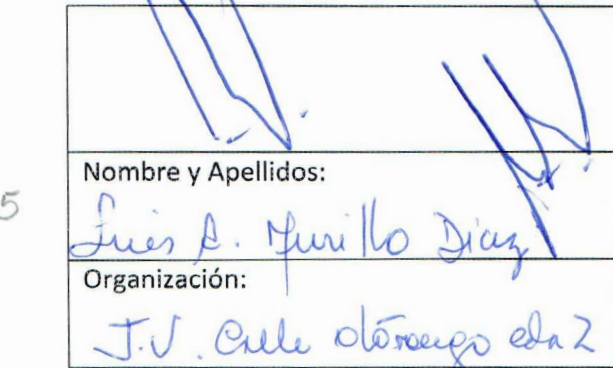 5
Nombre y Apellidos:
Luis A. Murillo Diaz
Organización:
J.V. Calle